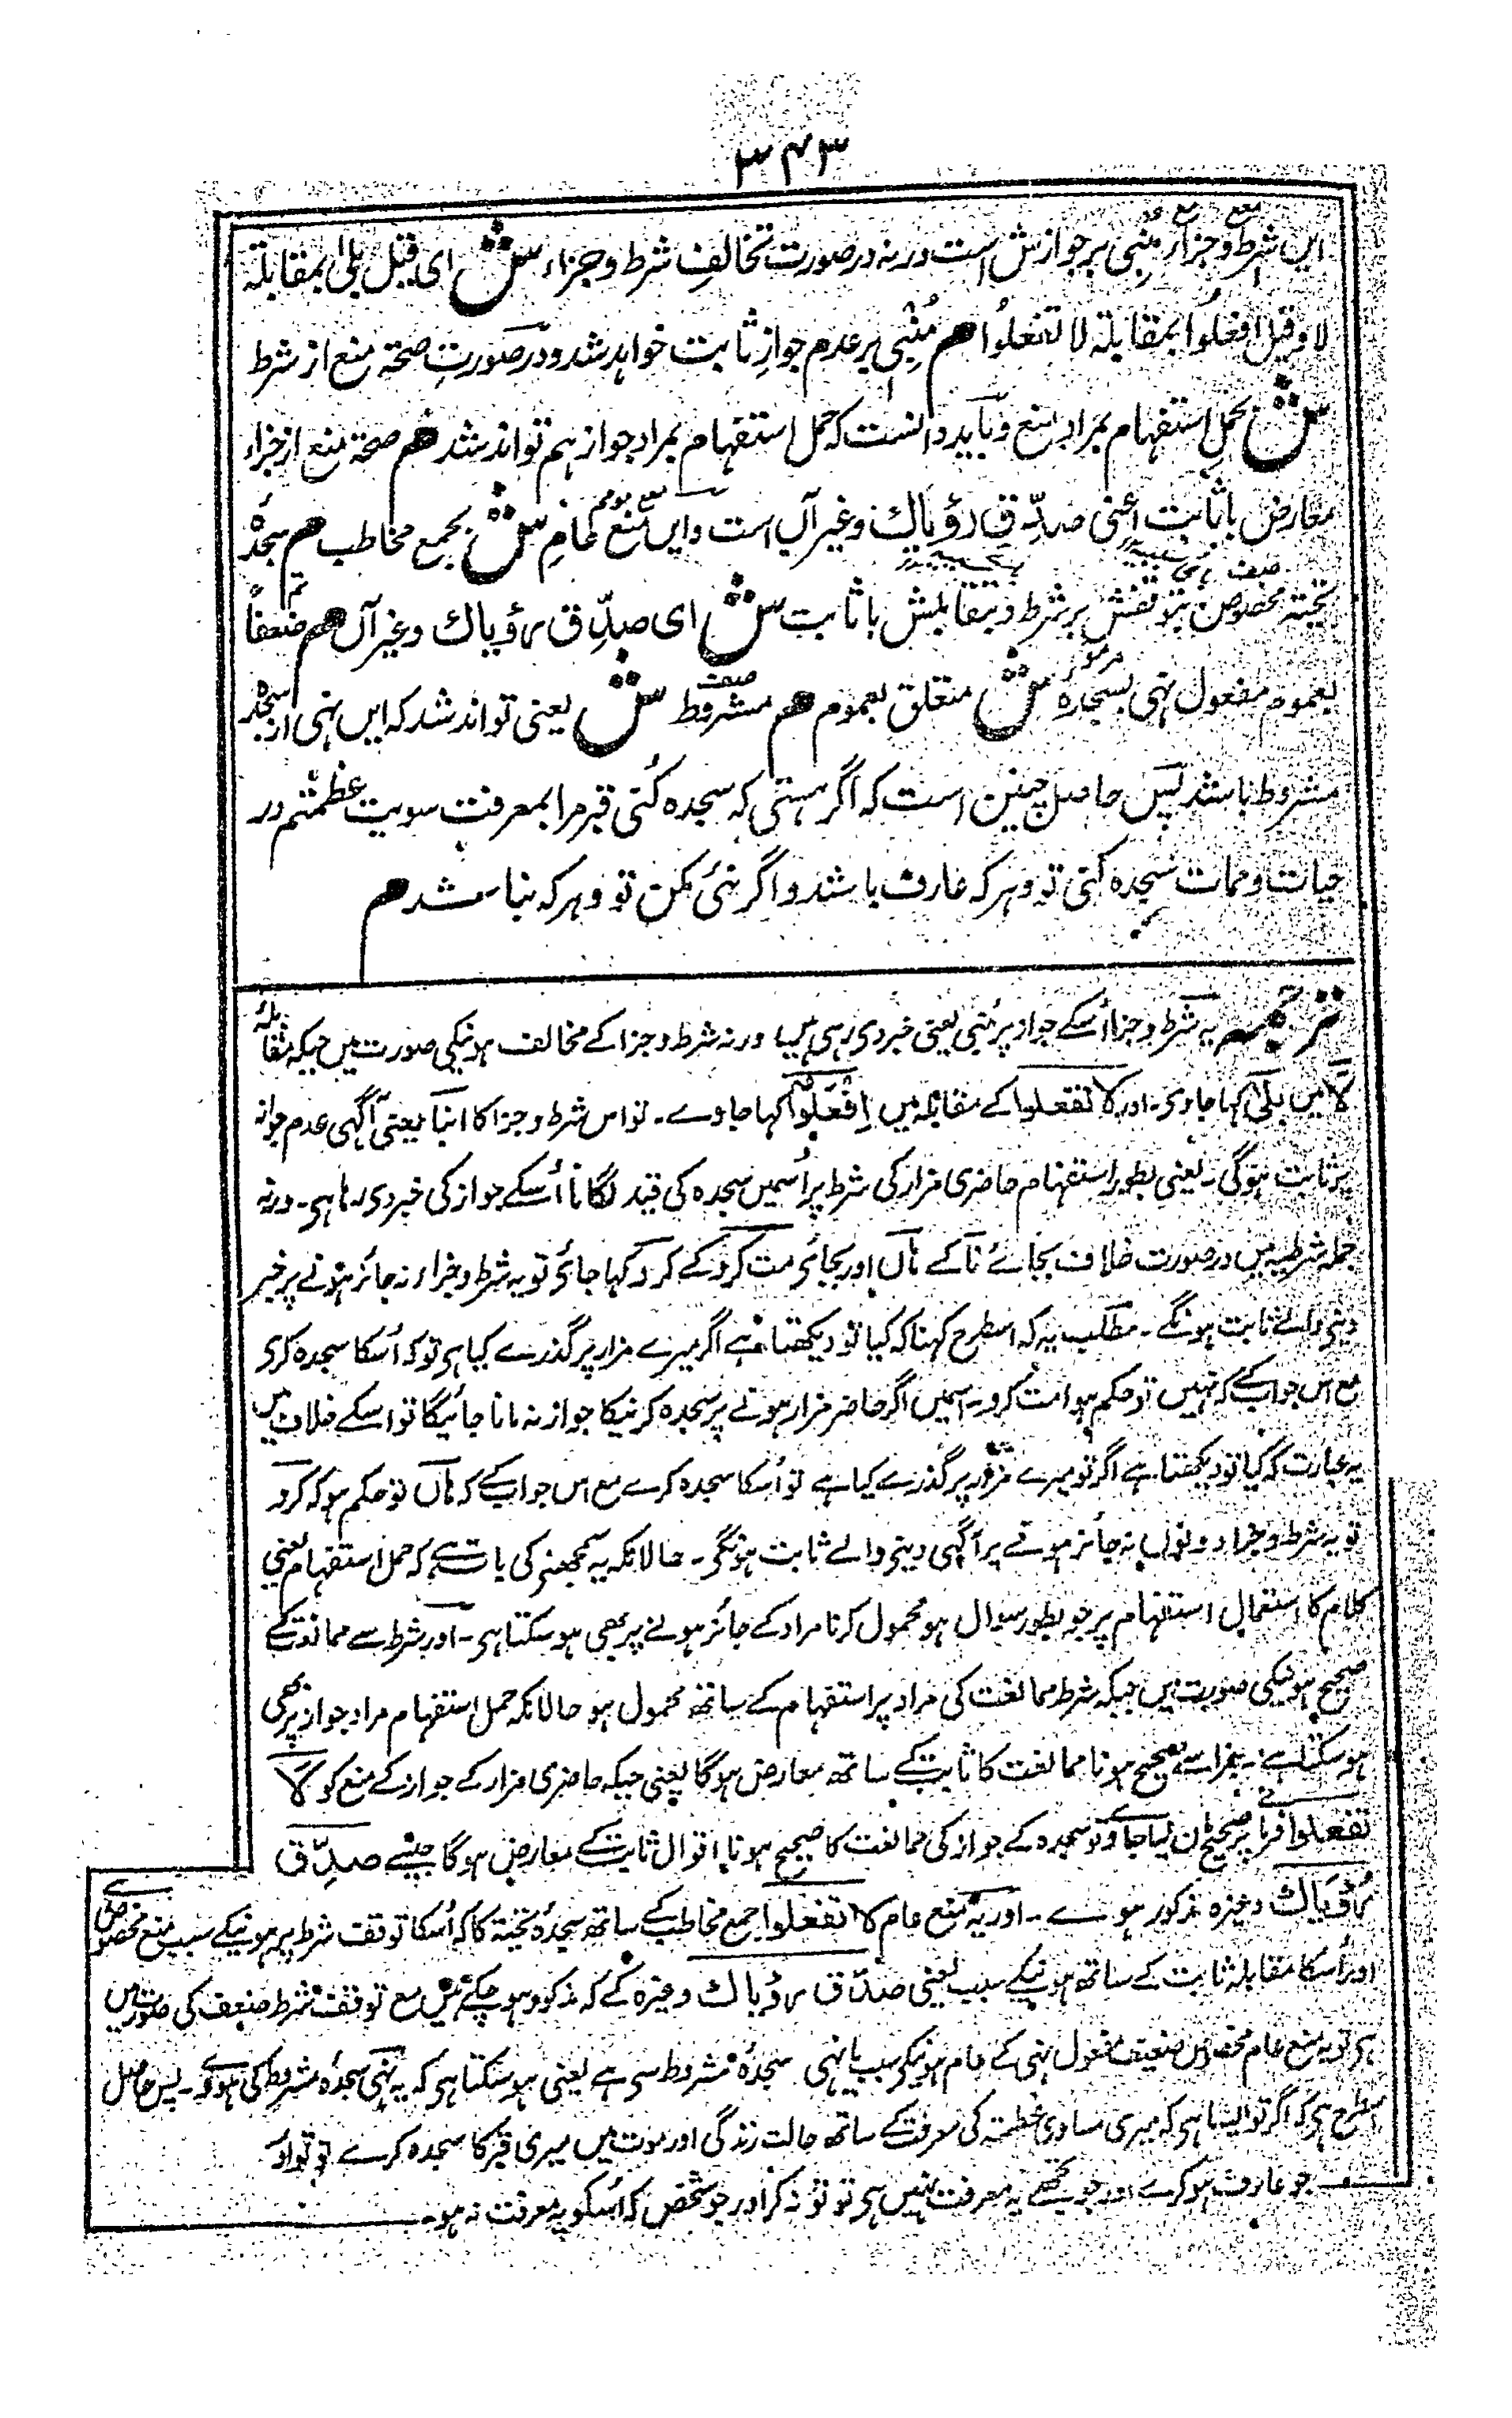 ۳۴۳
این شرط و جزاء مُنبی بر جوازش است ورنہ در صورت تخالفِ شرط و جزاء ش ای قیل بلٰی بمقابلہ
لا و قیل افعلُوا بمقابلۃ لا تفعلُوا هم مُنبی بر عدم جوازِ ثابت خواہد شد و در صورتِ صحتہ منع از شرط
ش بحملِ استفہام بمراد منع و باید دانست کہ حمل استفہام بمراد جواز ہم تواند شد هم صحۃ منع از جزاء
معارض با ثابت اعنی صدِّق رؤیاك وغیر آں است و ایں منع عامِ ش بجمع مخاطب هم سجدُہ
تحیتہ مخصوص بتوقفش بر شرط و بتقابلش با ثابت ش ای صدِّق رؤیاك وغیر آں هم ضعفاً
بعموم مفعول نہی بسجدہ ش متعلق بعموم هم مشروط ش یعنی تواند شد کہ ایں نہی از سجدہ
مشروط باشد پس حاصل چنین است کہ اگر ہستی کہ سجدہ کنی قبر مرا بمعرفت سویت عظمتم در
حیات و ممات سجدہ کنی تو و ہر کہ عارف باشد و اگر نئی مکن تو و ہر کہ نباشد هم
ترجمہ یہ شرط و جزا اُسکے جواز پر مُنبی یعنی خبر دی رہی ہیں ورنہ شرط و جزا کے مخالف ہونیکی صورت میں جبکہ مقابلہ
لَا میں بلٰی کہا جاوی۔ اور لا تفعلوا کے مقابلہ میں اِفْعَلُوْا کہا جاوے۔ تو اس شرط و جزا کا انبا یعنی آگہی عدم جواز
پر ثابت ہوگی۔ یعنی بطور استفہام حاضری مزار کی شرط پر اُسمیں سجدہ کی قید لگانا اُسکے جواز کی خبر دی رہا ہی۔ ورنہ
جملہ شرطیہ میں در صورت خلاف بجائے نا کے ہاں اور بجائی مت کرو کے کرو کہا جائی تو یہ شرط و جزاء نہ جائز ہونے پر خبر
دینی والے ثابت ہونگے۔ مطلب یہ کہ اسطرح کہنا کہ کیا تو دیکھتا ہے اگر میرے مزار پر گذرے کیا ہی تو کہ اُسکا سجدہ کری
مع اس جواب کے کہ نہیں تو حکم ہوا مت کرو۔ اسمیں اگر حاضر مزار ہونے پر سجدہ کرنیکا جواز نہ مانا جائیگا تو اسکے خلاف میں
یہ عبارت کہ کیا تو دیکھتا ہے اگر تو میرے مزار پر گذرے کیا ہے تو اُسکا سجدہ کرے مع اس جواب کے کہ ہاں تو حکم ہو کہ کرو
تو یہ شرط و جزا دونوں نہ جائز ہونے پر آگہی دینی والے ثابت ہونگی۔ حالانکہ یہ سمجھنی کی بات ہے کہ حمل استفہام یعنی
کلام کا استعمال استفہام پر جو بطور سوال ہو محمول کرنا مراد کے جائز ہونے پر بھی ہو سکتا ہی۔ اور شرط سے ممانعت کے
صحیح ہونیکی صورت میں جبکہ شرط ممانعت کی مراد پر استفہام کے ساتھ محمول ہو حالانکہ حمل استفہام مراد جواز پر بھی
ہو سکتا ہے۔ جزا سے صحیح ہونا ممانعت کا ثابت کے ساتھ معارض ہوگا یعنی جبکہ حاضری مزار کے جواز کے منع کو لَا
تفعلوا فرمانے پر صحیح مان لیا جاوے تو سجدہ کے جواز کی ممانعت کا صحیح ہونا اقوال ثابت کے معارض ہوگا جیسے صدِّق
رُؤیَاك وغیرہ مذکور ہوے۔ اور یہ منع عام لا تفعلوا جمع مخاطب کے ساتھ سجدہ تحیتہ کا کہ اُسکا توقف شرط پر ہونیکے سبب منع مخصوص ہی
اور اُسکا مقابلہ ثابت کے ساتھ ہونیکے سبب یعنی صدِّق رؤیاك وغیرہ کے کہ مذکور ہو چکے ہیں مع توقف شرط ضعف کی صورت میں
ہی تو یہ منع عام مخصوص ضعیف مفعول نہی کے عام ہونیکی سبب یا نہی سجدہ مشروط سی ہے یعنی ہو سکتا ہی کہ یہ نہی سجدہ مشروط کی ہووے۔ پس حاصل
اسطرح ہی کہ اگر تو ایسا ہی کہ میری مساوی عظمتہ کی معرفت کے ساتھ حالت زندگی اور موت میں میری قبر کا سجدہ کرے تو تو اور
جو عارف ہو کرے اور جو تجھے یہ معرفت نہیں ہی تو تو نہ کر اور جو شخص کہ اُسکو یہ معرفت نہ ہو۔